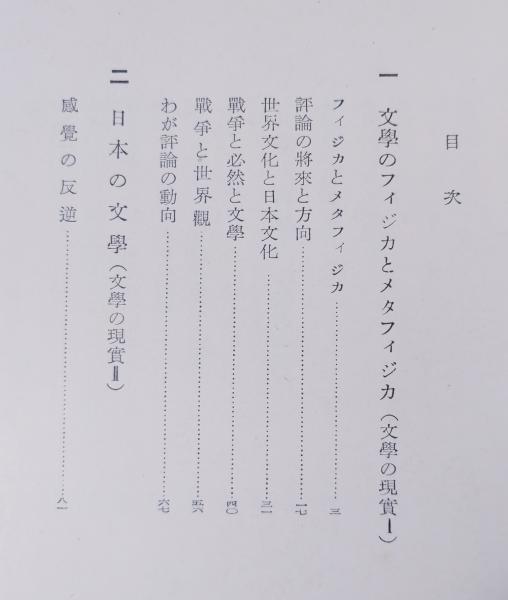 目次
一 文學のフィジカとメタフィジカ(文學の現實Ⅰ)
フィジカとメタフィジカ……三
評論の將來と方向……一七
世界文化と日本文化……三一
戰爭と必然と文學……四〇
戰爭と世界觀……五六
わが評論の動向……六七
二 日本の文學(文學の現實Ⅱ)
感覺の反逆……八一